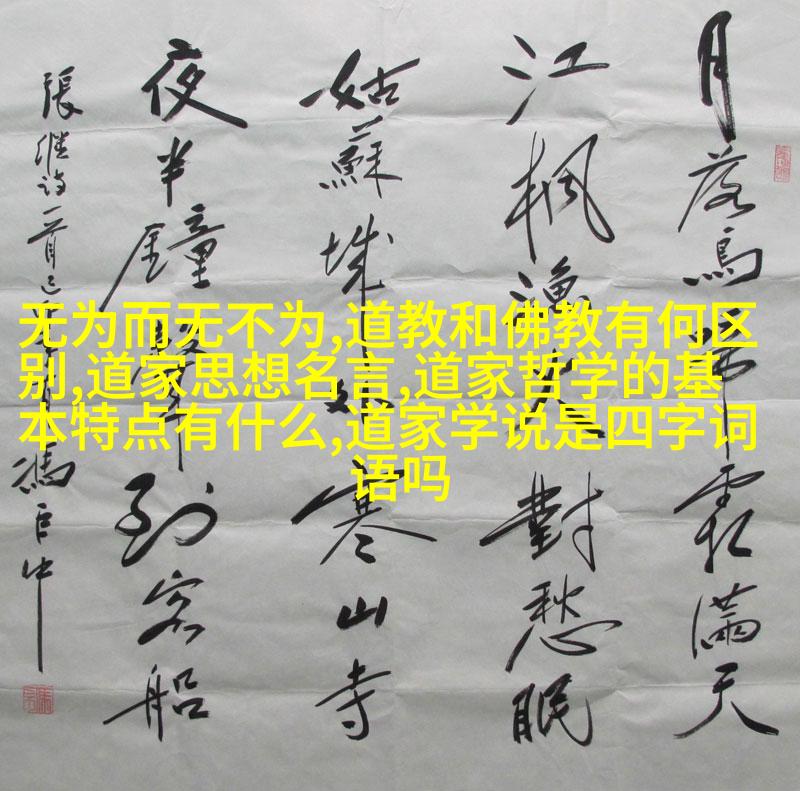 月落烏啼霜滿天
江枫漁火對愁眠
姑蘇城外寒山寺
夜半鐘聲到客船
張继诗一首 馮臣中
无为而无不为,道教和佛教有何区
别,道家思想名言,道家哲学的基
本特点有什么,道家学说是四字词
语吗